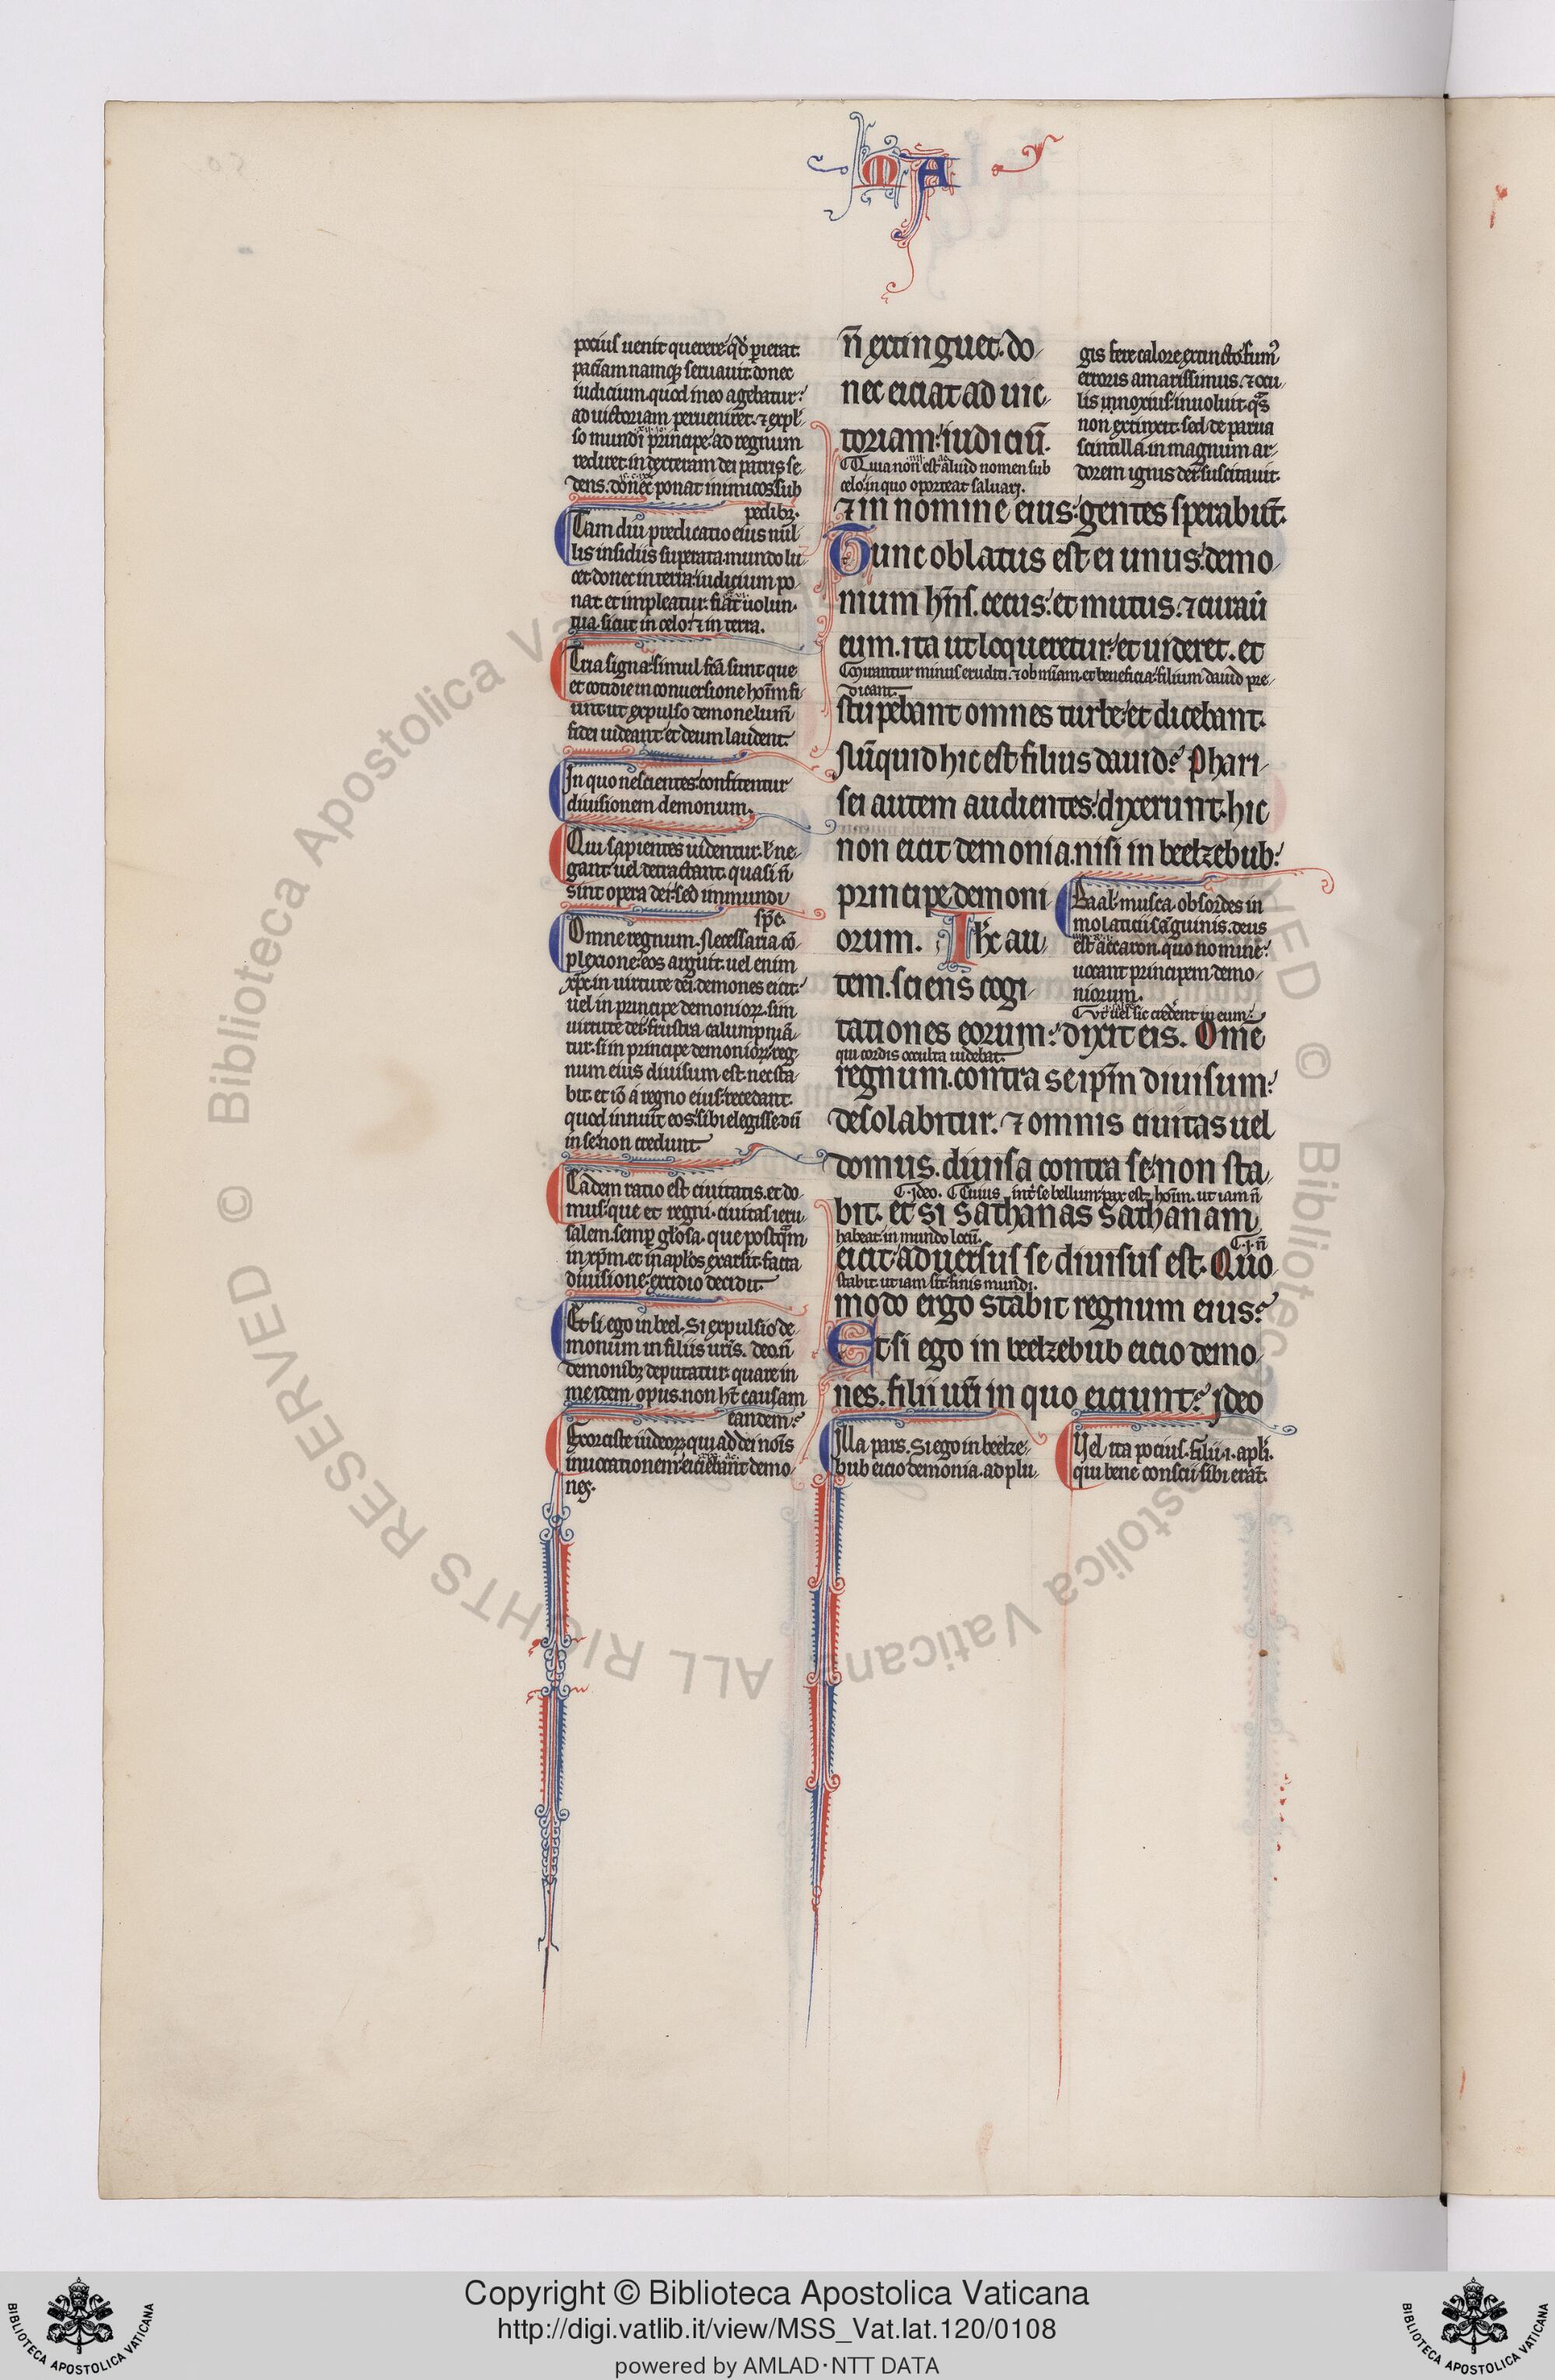 MA
pocius uenit querere qd̕ perierat.
paciam namq; seruauit. donec
iudicium. quod in eo agebatur:
ad uictoriam perueniret. ⁊ expl̕
so mundi principe: ad regnum
rediret. in dexteram dei patris se-
dens. donec ponat inimicos sub
pedibꝫ.
Tam diu predicatio eius nul-
lis insidiis superata. mundo lu-
cet donec in terra iudicium po-
nat. et impleatur. fiat uolun-
tua. sicut in celo: ⁊ in terra.
Tria signa simul fc̄a sunt que
et cotidie in conuersione hoīm fi-
unt. ut expulso demone lum̄
fidei uideant. et deum laudent.
In quo nescientes confitentur
diuisionem demonum.
Qui sapientes uidentur. ł ne-
gant uel detractant. quasi n̄
sint opera dei. sed immundi
sp̄c.
Omne regnum. Necessaria cō-
plexione eos arguit. uel enim
xp̄c in uirtute dei. demones eicit.
uel in principe demonioꝝ. si in
uirtute dei. frustra calumpniā-
tur. si in principe demonioꝝ. reg-
num eius diuisum est. nec sta-
bit. et iō a regno eius. recedant.
quod innuit eos. sibi elegisse dū
in se non credunt.
Eadem ratio est ciuitatis. et do-
mus. que et regni. ciuitas ieru-
salem. semp̲ gl̄osa. que postq̄m
in xp̄m. et in ap̄los exarsit. facta
diuisione. excidio decidit.
Et si ego in beel. Si expulsio de-
monum in filiis uris̄. deo. n̄
demonibꝫ deputatur. quare in
me idem opus. non h̄t causam
eandem?
Exorciste iudeoꝝ. qui ad dei nōis
inuocationem. eiciebant demo-
nes.
n̄ extinguet. do-
nec eiciat ad uic-
toriam: iudiciū.
Quia non est aliud nomen sub
celo. in quo oporteat saluari.
⁊ in nomine eius: gentes sperabunt̄.
Tunc oblatus est ei unus: demo-
nium hn̄s. cecus: et mutus. ⁊ curaū
eum. ita ut loqueretur: et uideret. et
Mirantur minus eruditi. ⁊ ob mīam. et beneficia. filium dauid pre-
dicant.
stupebant omnes turbe: et dicebant.
Nūquid hic est filius dauid? Phari-
sei autem audientes: dixerunt. hic
non eicit demonia. nisi in beelzebub:
principe demoni-
orum. Ihc̄ au-
tem. sciens cogi-
Vt uel sic credent in eum.
tationes eorum: dixit eis. Om̄e
qui cordis occulta uidebat.
regnum. contra seip̄m diuisum:
desolabitur. ⁊ omnis ciuitas uel
domus. diuisa contra se: non sta-
Ideo. Cuius int̕ se bellum: pax est hoīm. ut iam n̄
bit. et si sathanas sathanam
habeat in mundo locū.
.i. n̄
eicit: aduersus se diuisus est. Quo-
stabit. ut iam sit finis mundi.
modo ergo stabit regnum eius?
Et si ego in beelzebub eicio demo-
nes. filii ur̄i in quo eiciunt? Ideo
Illa pars. Si ego in beelze-
bub eicio demonia. ad plu-
gis fere calore extincto: fum̄
erroris amarissimus. ⁊ ocu-
lis innoxius. inuoluit. q̄s
non extinxit. sed de parua
scintilla. in magnum ar-
dorem ignis dei. suscitauit.
Baal. musca. ob sordes in
molaticii sanguinis. deus
est accaron. quo nomine:
uocant principem demo-
niorum.
Vel ita pocius. filii .i. apl̕i.
qui bene conscii sibi erant̄.
Copyright © Biblioteca Apostolica Vaticana
http://digi.vatlib.it/view/MSS_Vat.lat.120/0108
powered by AMLAD·NTT DATA
BIBLIOTECA APOSTOLICA VATICANA
BIBLIOTECA APOSTOLICA VATICANA